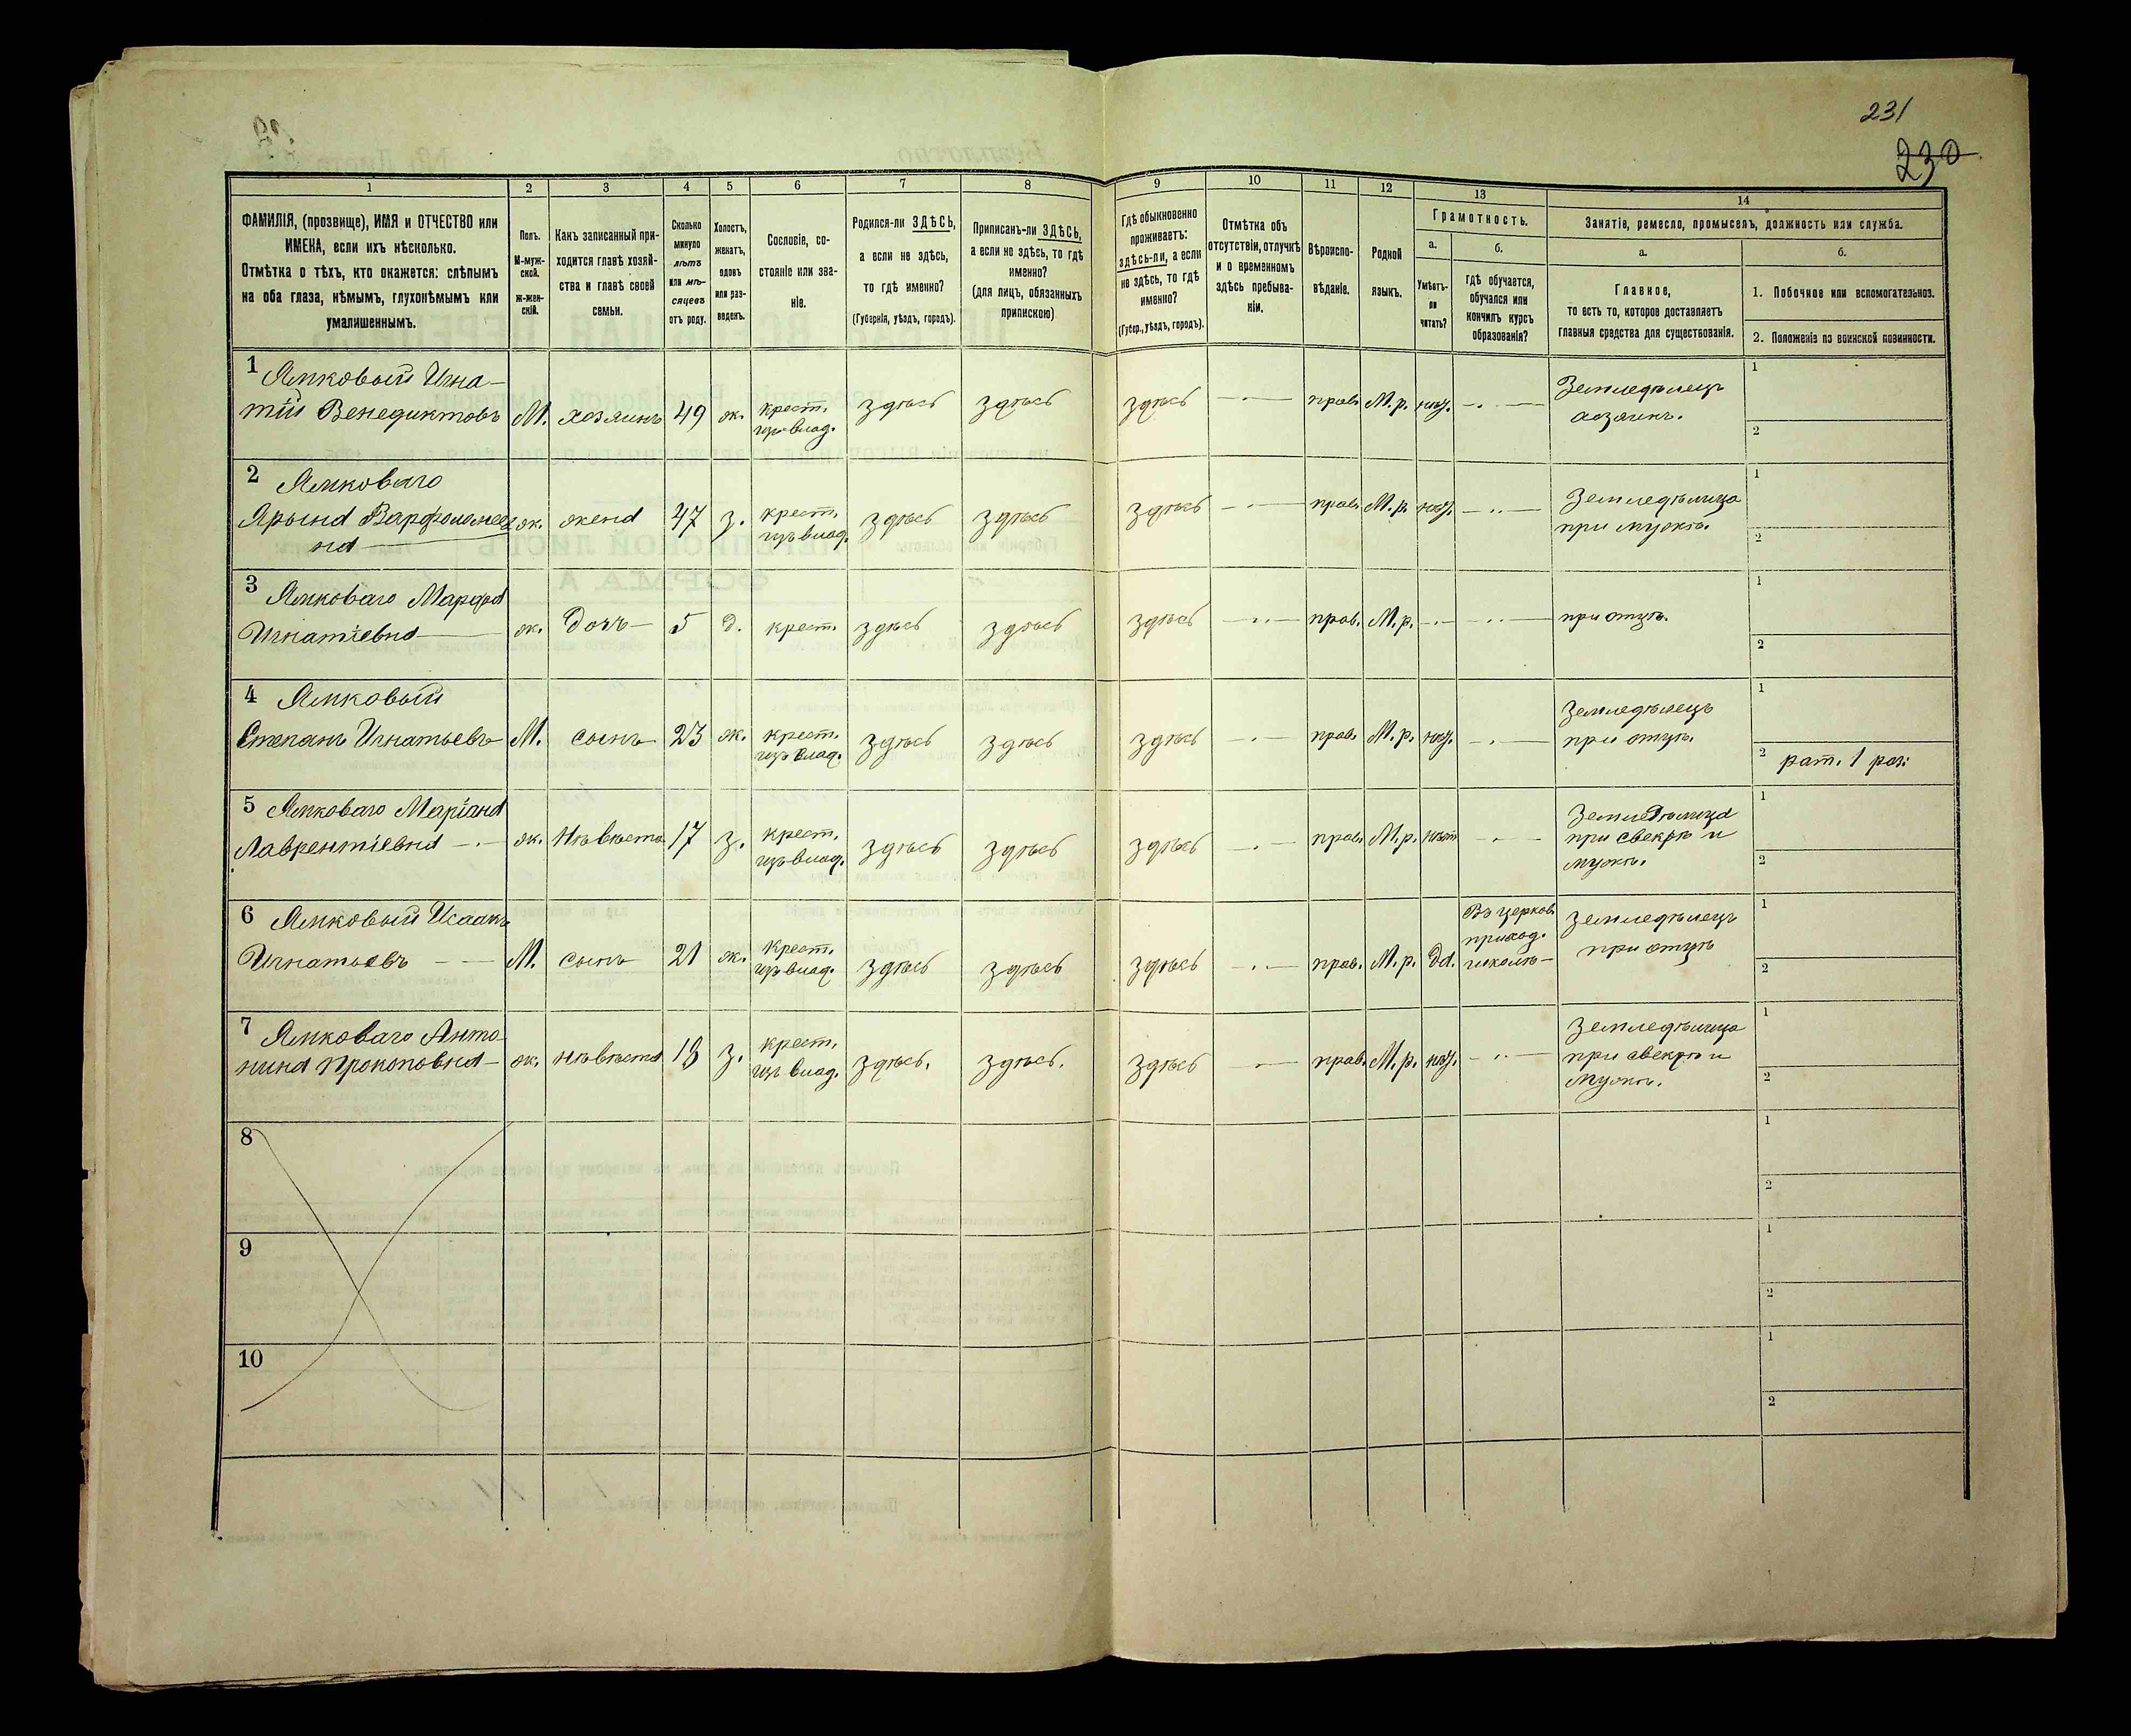 231
230
1 2 3 4 5 6 7 8 9 10 11 12 13 14
ФАМИЛІЯ, (прозвище), ИМЯ и ОТЧЕСТВО или
ИМЕНА, если ихъ нѣсколько.
Отмѣтка о тѣхъ, кто окажется: слѣпымъ
на оба глаза, нѣмымъ, глухонѣмымъ или
умалишеннымъ.
Полъ.
М-муж-
ской.
ж-жен-
скій.
Какъ записанный при-
ходится главѣ хозяй-
ства и главѣ своей
семьи.
Сколько
минуло
лѣтъ
или мѣ-
сяцевъ
отъ роду.
Холостъ,
женатъ,
вдовъ
или раз-
веденъ.
Сословіе, со-
стояніе или зва-
ніе.
Родился-ли ЗДѢСЬ,
а если не здѣсь,
то гдѣ именно?
(Губернія, уѣздъ, городъ).
Приписанъ-ли ЗДѢСЬ,
а если не здѣсь, то гдѣ
именно?
(для лицъ, обязанныхъ
припискою)
Гдѣ обыкновенно
проживаетъ:
здѣсь-ли, а если
не здѣсь, то гдѣ
именно?
(Губер., уѣздъ, городъ).
Отмѣтка объ
отсутствіи, отлучкѣ
и о временномъ
здѣсь пребыва-
ніи.
Вѣроиспо-
вѣданіе.
Родной
языкъ.
Грамотность.
а.
Умѣетъ-
ли
читать?
б.
Гдѣ обучается,
обучался или
кончилъ курсъ
образованія?
Занятіе, ремесло, промыселъ, должность или служба.
а.
Главное,
то есть то, которое доставляетъ
главныя средства для существованія.
б.
1. Побочное или вспомогательное.
2. Положеніе по воинской повинности.
1 Ямковый Игна-
тій Венедиктовъ М. хозяинъ 49 ж. крест.
изъ влад. здѣсь здѣсь здѣсь прав. М.р. Земледѣлецъ
хозяинъ.
1
2
2 Ямковаго
Ярына Варфоломеев
на ж. жена 47 з. крест.
изъ влад. здѣсь здѣсь здѣсь прав. М.р. Земледѣлица
при мужѣ.
1
2
3 Ямковаго Марфа
Игнатіевна ж. дочь 5 д. крест. здѣсь здѣсь здѣсь прав. М.р. при отцѣ.
1
2
4 Ямковый
Степанъ Игнатьевъ М. сынъ 23 ж. крест.
изъ влад. здѣсь здѣсь здѣсь прав. М.р. Земледѣлецъ
при отцѣ.
1
2 рат. 1 раз.
5 Ямковаго Маріана
Лаврентіевна ж. Невѣста 17 з. крест.
изъ влад. здѣсь здѣсь здѣсь прав. М.р. нѣт Земледѣлица
при свекрѣ и
мужѣ.
1
2
6 Ямковый Исаакъ
Игнатьевъ М. сынъ 21 ж. крест.
изъ влад. здѣсь здѣсь здѣсь прав. М.р. Да. Въ церков.
приход.
школѣ Земледѣлецъ
при отцѣ
1
2
7 Ямковаго Анто
нина Прокоповна ж. невѣста 18 з. крест.
изъ влад. здѣсь. здѣсь. здѣсь прав. М.р. Земледѣлица
при свекрѣ и
мужѣ.
1
2
8
1
2
9
1
2
10
1
2